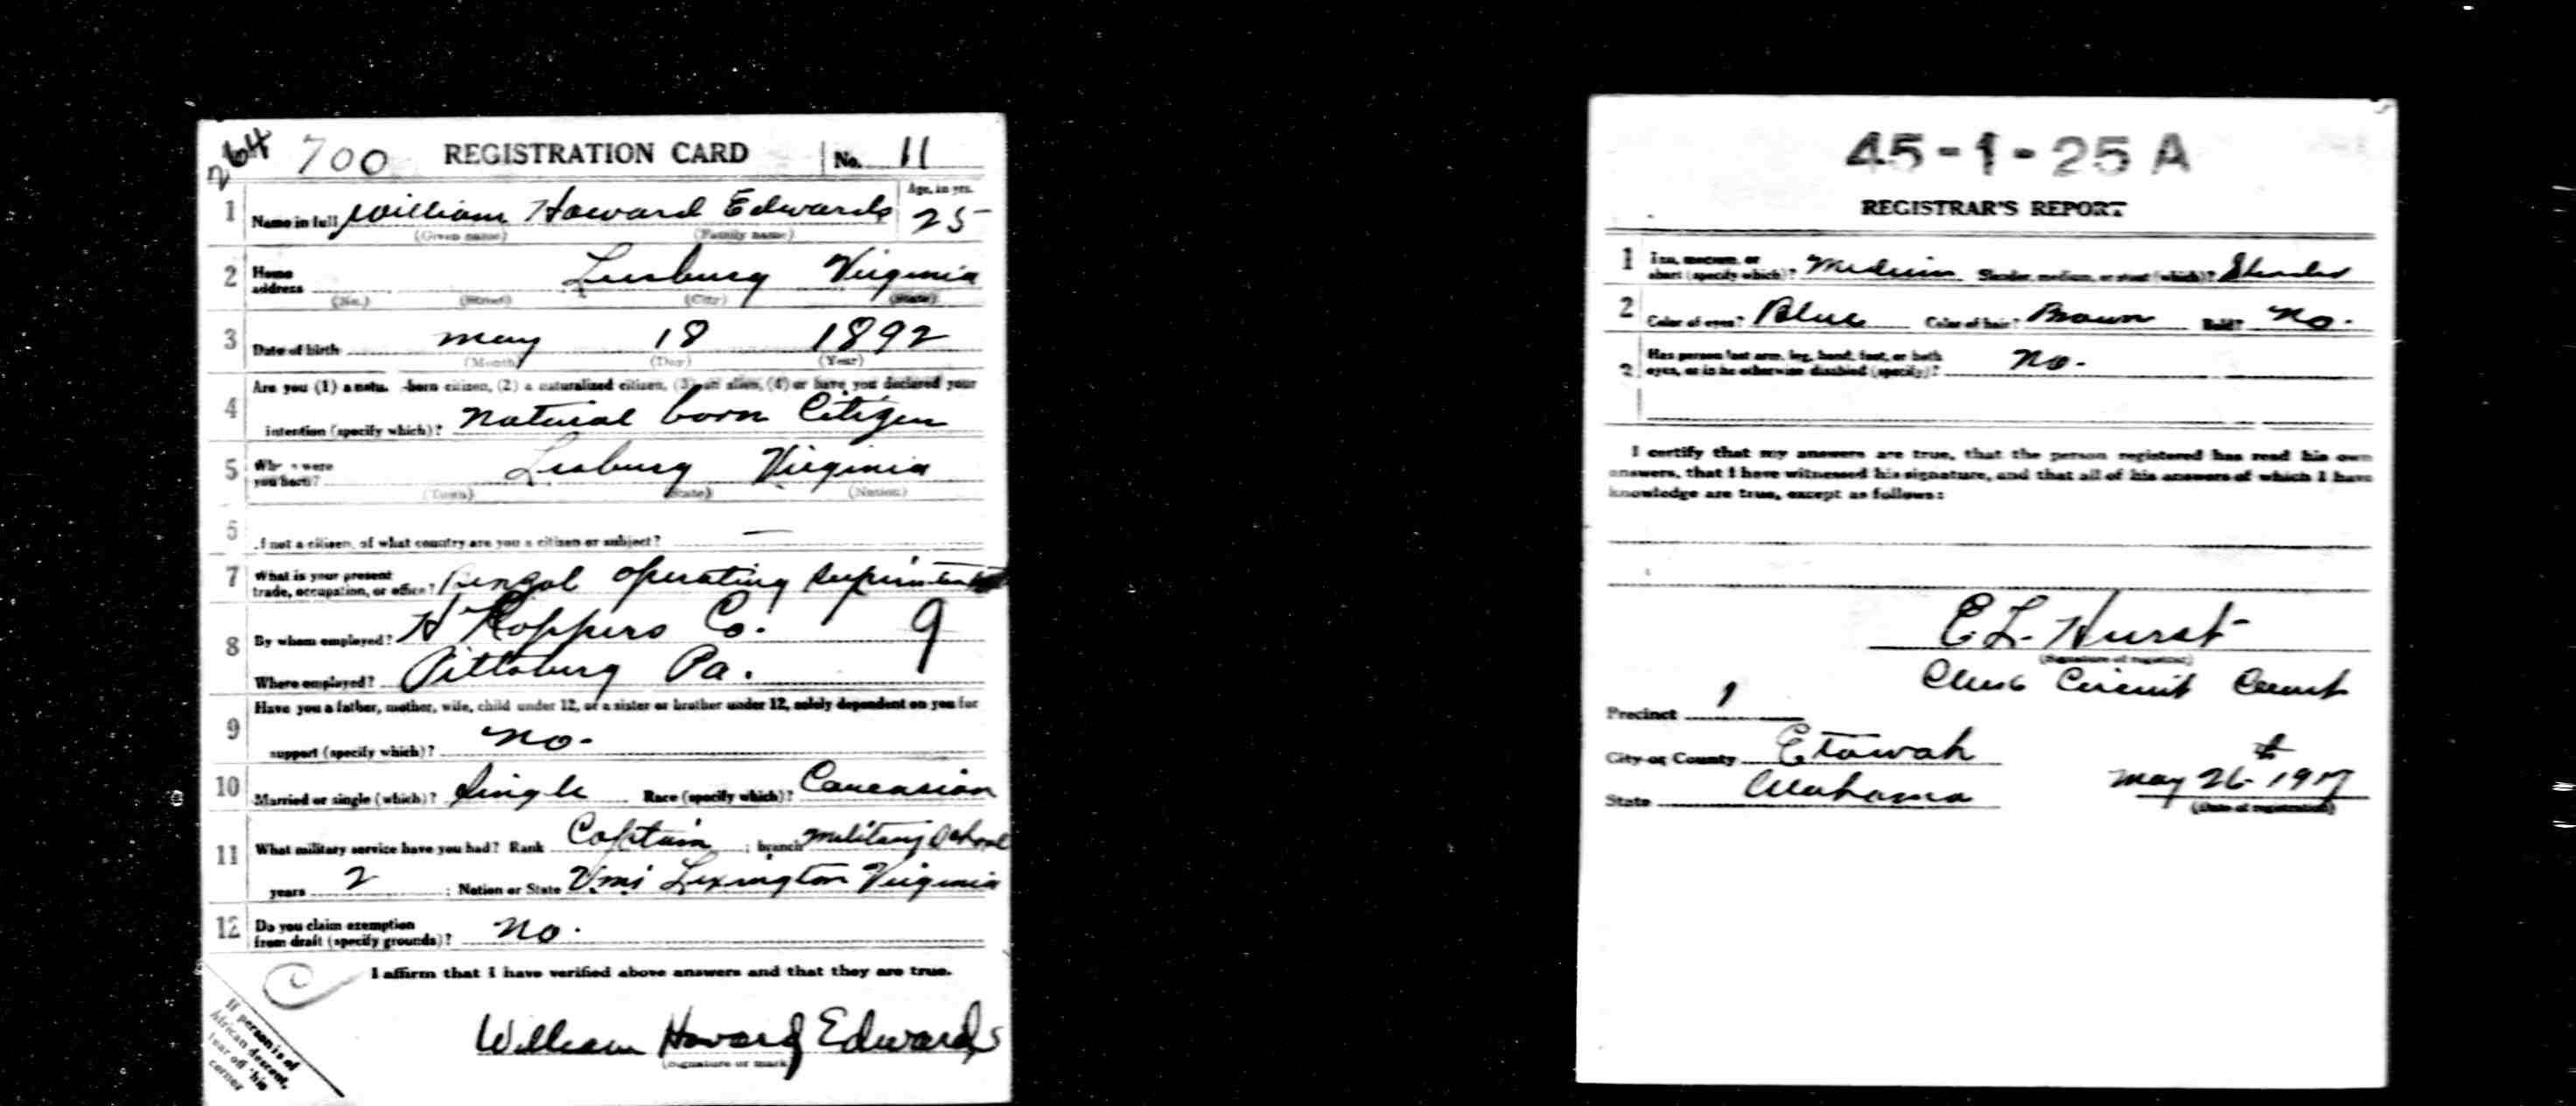 264 700 REGISTRATION CARD No. 11
1 Name in full William Howard Edwards Age, in yrs. 25
(Given name) (Family name)
2 Home address Leesburg Virginia
(No.) (Street) (City) (State)
3 Date of birth May 18 1892
(Month) (Day) (Year)
Are you (1) a natu -born citizen, (2) a naturalized citizen, (3) an alien, (4) or have you declared your
4 intention (specify which)? Natural born Citizen
5 Wh were you born? Leesburg Virginia
(Town) (State) (Nation)
6 If not a citizen, of what country are you a citizen or subject? —
7 What is your present trade, occupation, or office? Benzol operating Superintendent
8 By whom employed? H Koppers Co. 9
Where employed? Pittsburg Pa.
Have you a father, mother, wife, child under 12, or a sister or brother under 12, solely dependent on you for
9 support (specify which)? No.
10 Married or single (which)? Single Race (specify which)? Caucasian
11 What military service have you had? Rank Captain ; branch Military School
years 2 ; Nation or State V.M.I Lexington Virginia
12 Do you claim exemption from draft (specify grounds)? No.
I affirm that I have verified above answers and that they are true.
William Howard Edwards
(Signature or mark)
If person is of
African descent,
tear off this
corner
45-1-25 A
REGISTRAR'S REPORT
1 Tall, medium, or short (specify which)? Medium Slender, medium, or stout (which)? Slender
2 Color of eyes? Blue Color of hair? Brown Bald? No.
3 Has person lost arm, leg, hand, foot, or both eyes, or is he otherwise disabled (specify)? No.
I certify that my answers are true, that the person registered has read his own
answers, that I have witnessed his signature, and that all of his answers of which I have
knowledge are true, except as follows:
E. L. Hurst
(Signature of registrar)
Clerk Circuit Court
Precinct 1
City or County Etowah
State Alabama May 26th 1917
(Date of registration)